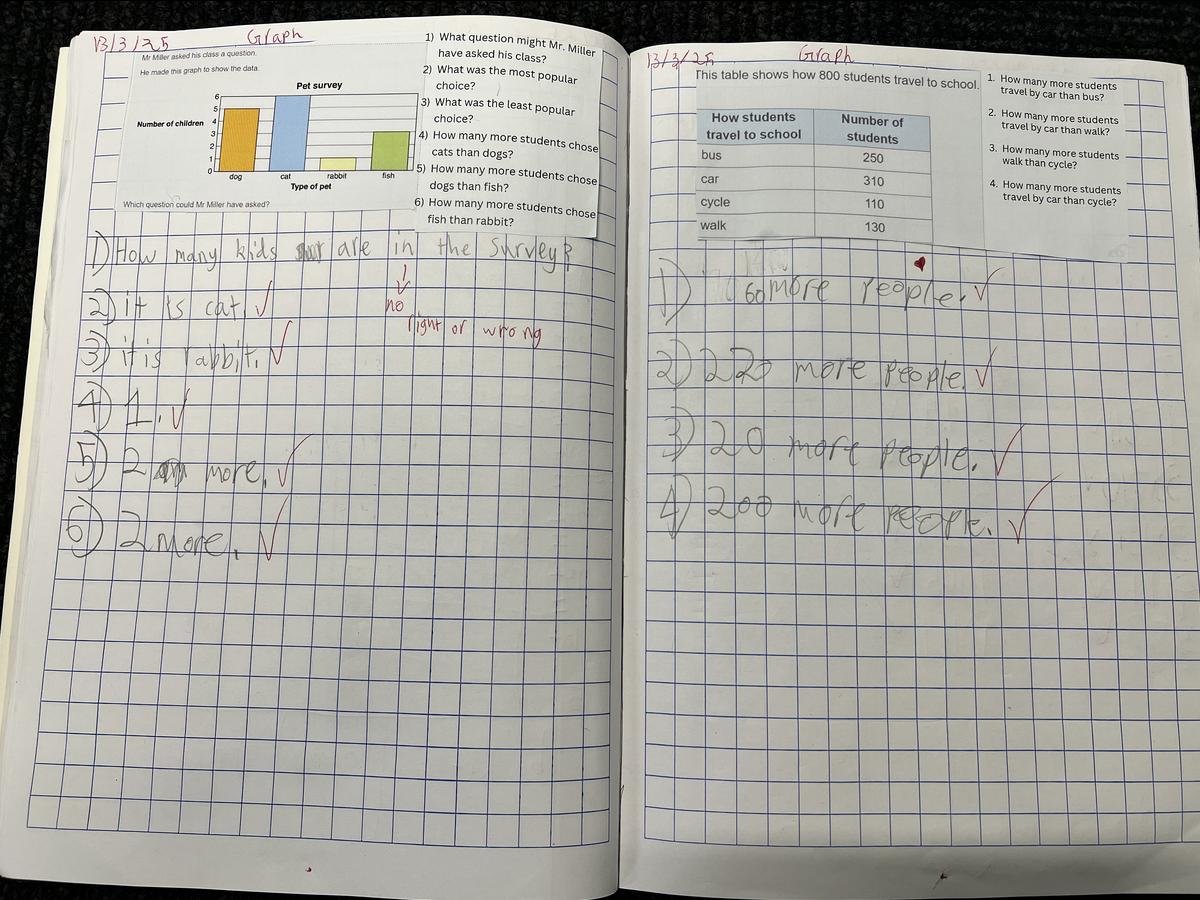 13/3/25 Graph
Mr Miller asked his class a question.
He made this graph to show the data.
Pet survey
Number of children
6
5
4
3
2
1
0
dog cat rabbit fish
Type of pet
Which question could Mr Miller have asked?
1) What question might Mr. Miller
have asked his class?
2) What was the most popular
choice?
3) What was the least popular
choice?
4) How many more students chose
cats than dogs?
5) How many more students chose
dogs than fish?
6) How many more students chose
fish than rabbit?
1) How many kids are in the survey?
no
right or wrong
2) it is cat.
3) it is rabbit.
4) 1.
5) 2 more.
6) 2 more.
13/3/25 Graph
This table shows how 800 students travel to school.
How students
travel to school
Number of
students
bus 250
car 310
cycle 110
walk 130
1. How many more students
travel by car than bus?
2. How many more students
travel by car than walk?
3. How many more students
walk than cycle?
4. How many more students
travel by car than cycle?
1) 60 more people.
2) 220 more people.
3) 20 more people.
4) 200 more people.